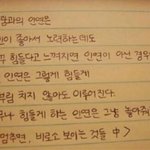 람과의 인연은
신이 좋아서 노력하는데도
무 힘들다고 느껴지면 인연이 아닌 경우
인연은 그렇게 힘들게
부림 치지 않아도 이루어진다.
무나 힘들게 하는 인연은 그냥 놓아주
멈추면, 비로소 보이는 것들 中>